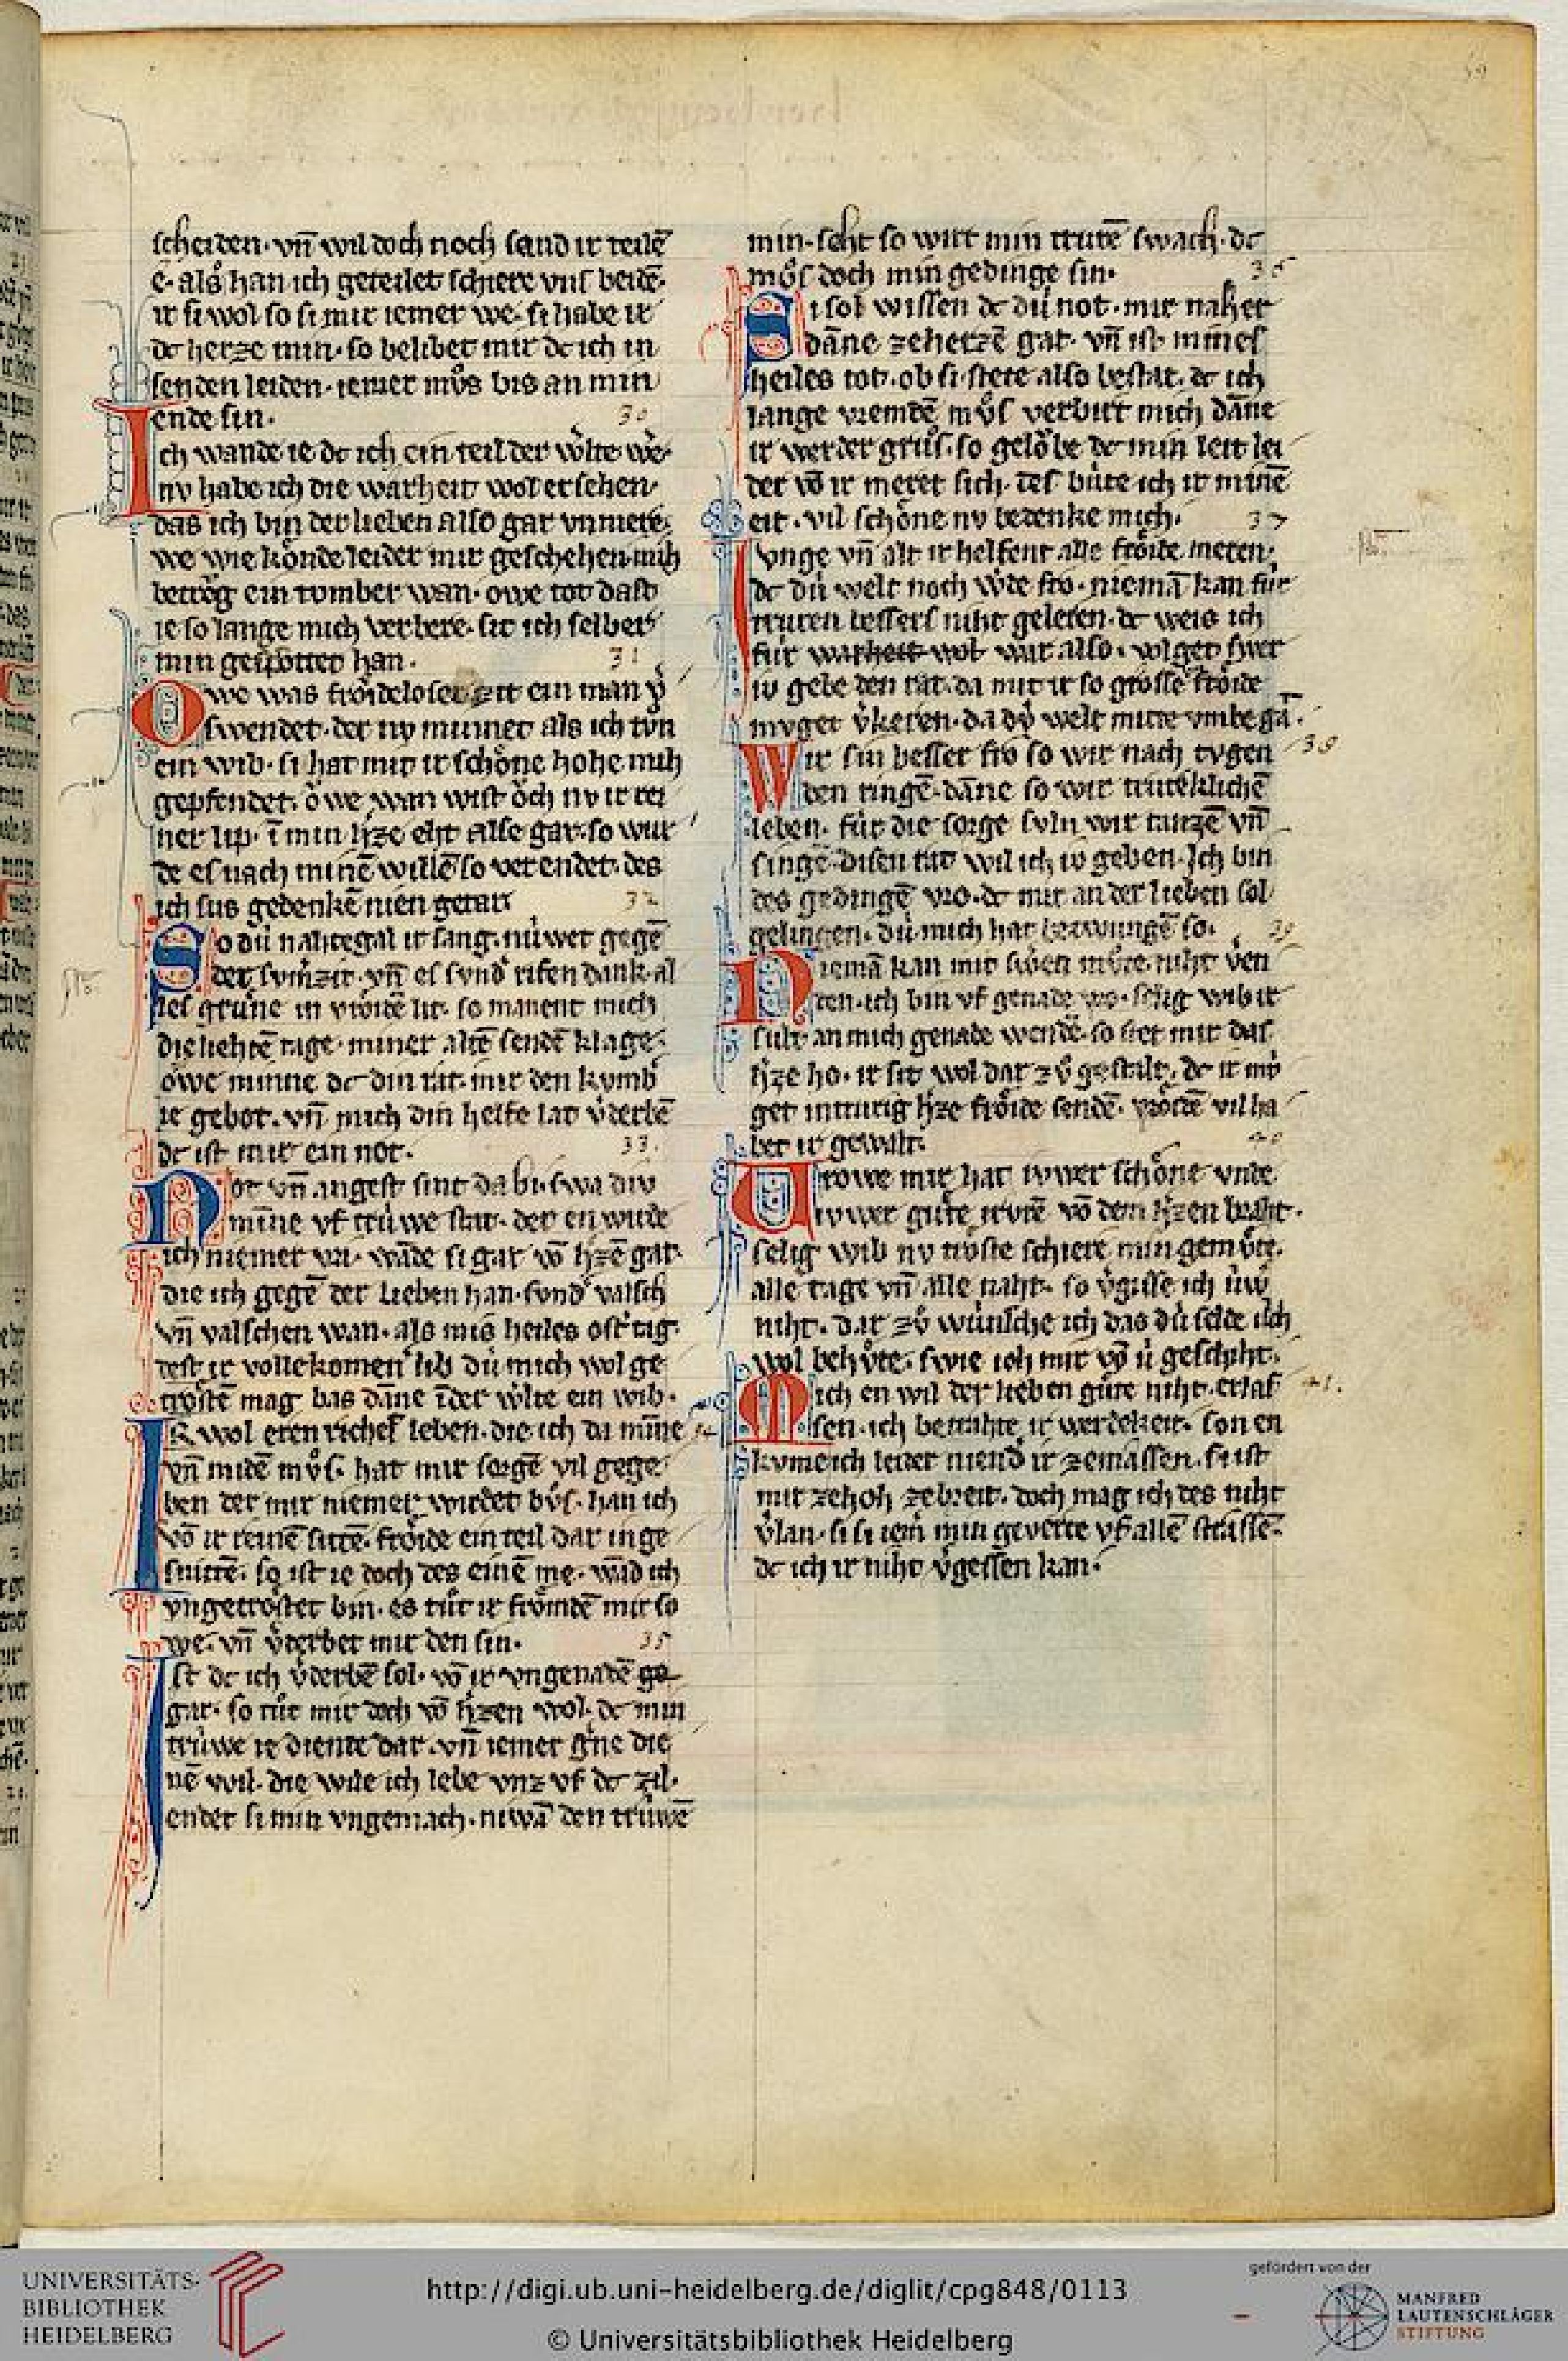 scheiden. vn̄ wil doch noch sand ir teilē
e. als han ich geteilet schiere vns beidē.
ir si wol so si mir iemer we. si habe ir
dc herze min. so belibet mir dc ich in
senden leiden. iemer mvͦs bis an min
ende sin. 30
Ich wande ie dc ich ein teil der wͤlte wͤ.
nv habe ich die warheit wol ersehen.
das ich bin der lieben also gar vnmere.
we wie koͤnde leider mir geschehen. mih
betroͮg ein tvmber wan. owe tot dast
ie so lange mich verbere. sit ich selber
min gespottet han. 31
Owe was froͤideloser zit ein man v̾
swendet. der nv minnet als ich tvͦn
ein wib. si hat mir ir schoͤne hohe mih
gepfendet. oͮwe wan wist oͮch nv ir rei
ner lip. ī min h̾ze eht alse gar. so wur
de es nach minē willē so verendet. des
ich sus gedenkē nien getar. 32
So dú nahtegal ir sang. núwet gegē
der svm̄zit. vn̄ es svnd̾ risen dank. al
les gruͤne in vroͤidē lit. so manent mich
die liehtē tage. miner altē sendē klage.
owe minne dc din rat. mir den kvmb̾
ie gebot. vn̄ mich din helfe lat v̾derbē
dc ist mir ein not. 33.
Not vn̄ angest sint da bi. swa div
minne vf trúwe stat. der en wurde
ich niemer vri. wāde si gar vō h̾zē gat.
die ich gegē der lieben han. svnd̾ valsch
vn̄ valschen wan. als mis heiles ost̾tag.
dest ir vollekomen lib dú mich wol ge
troͤstē mag bas dāne īder wͤlte ein wib.
Ir wol eren riches leben. die ich da mīne 34
vn̄ midē mvͦs. hat mir sorgē vil gege
ben der mir niemer wirdet bvͦs. han ich
vō ir reinē sittē. froͤide ein teil dar in ge
snittē. so ist ie doch des einē me. wād ich
vngetroͤstet bin. es tuͦt ir froͤmdē mir so
we. vn̄ v̾derbet mir den sin. 35
Ist dc ich v̾derbē sol. vō ir vngenadē ge
gar. so tuͦt mir doch vō h̾zen wol. dc min
trúwe ie diente dar. vn̄ iemer g̾ne die
nē wil. die wile ich lebe vnz vf dc zil.
endet si min vngemach. niwā den trúwē
min. seht so wirt min trurē swach. dc
moͮs doch min gedinge sin. 36
Si sol wissen dc dú not. mir naher
dāne zeherzē gat. vn̄ ist mines
heiles tot. ob si stete also bestat. dc ich
lange vremdē mvͦs verbirt mich dāne
ir werder gruͦs. so geloͮbe dc min leit lei
der vō ir meret sich. des buͤte ich ir minē
eit. vil schoͤne nv bedenke mich. 37
Ivnge vn̄ alt ir helfent alle froͤide meren.
dc dú welt noch wͤde fro. niemā kan für
truren bessers niht geleren. dc weis ich
für warheit wol war also. volget hver
iv gebe den rat. da mit ir so grosse froͤide
mvget v̾keren. da dv̾ welt mitte vmbe gā.
Wir sin besser fro so wir nach tvgen 38
den ringē. dāne so wir trureklichē
leben. für die sorge svln wir tanzē vn̄
singē. disen rat wil ich iv geben. Ich bin
des gedingē vro. dc mir an der lieben sol
gelingen. dú mich hat betwungē so. 39
Niemā kan mir swen mvͦte niht ven
den. ich bin vf genade vro. selig wib ir
sult an mich genade wendē. so stet mir das
h̾ze ho. ir sit wol dar zvͦ gestalt. dc ir mv̾
get in trurig h̾ze froͤide sendē. vroͤide vil ha
bet ir gewalt. 40
Vrowe mir hat ivwer schoͤne vnde
ivwer guͤte trurē vō dem h̾zen braht.
selig wib nv troͤste schiere min gemvͤte.
alle tage vn̄ alle naht. so v̾gisse ich úw̾
niht. dar zvͦ wúnsche ich das dú selde úch
wol behvͤte. swie ioh mir vō ú geschiht.
Mich en wil der lieben guͤte niht. erlas 41.
sen. ich betrahte ir werdekeit. son en
kvme ich leider niend̾ ir zemassen. si ist
mir zehoh zebreit. doch mag ich des niht
v̾lan. si si iem̾ min geverte vf allē strassē.
dc ich ir niht v̾gessen kan.
UNIVERSITÄTS-
BIBLIOTHEK
HEIDELBERG
http://digi.ub.uni-heidelberg.de/diglit/cpg848/0113
© Universitätsbibliothek Heidelberg
gefördert von der
MANFRED
LAUTENSCHLÄGER
STIFTUNG